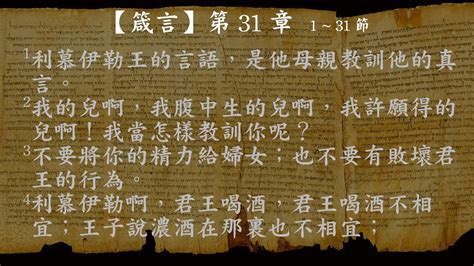 【箴言】第 31 章 1～31 節
1利慕伊勒王的言語，是他母親教訓他的真
言。
2我的兒啊，我腹中生的兒啊，我許願得的
兒啊！我當怎樣教訓你呢？
3不要將你的精力給婦女；也不要有敗壞君
王的行為。
4利慕伊勒啊，君王喝酒，君王喝酒不相
宜；王子說濃酒在那裏也不相宜；